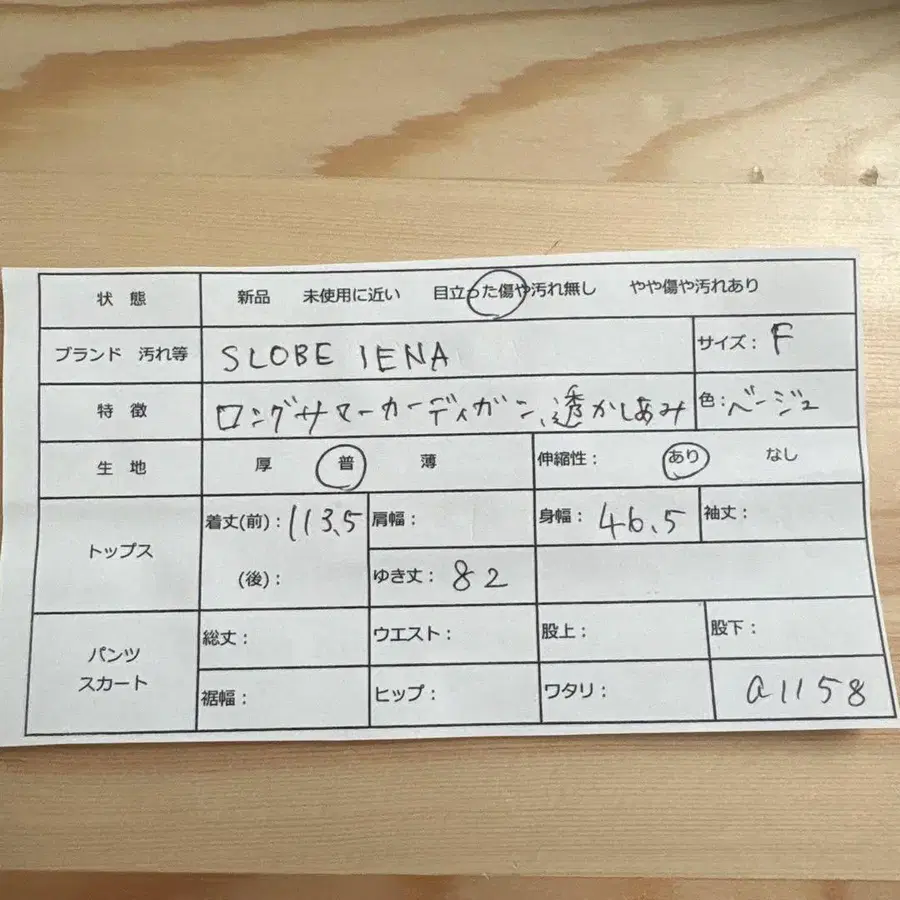 状 態 新品 未使用に近い 目立った傷や汚れ無し やや傷や汚れあり
ブランド 汚れ等 SLOBE IENA サイズ: F
特 徴 ロングサマーカーディガン、透かしあみ 色:ベージュ
生 地 厚 普 薄 伸縮性: あり なし
トップス 着丈(前):113.5 肩幅: 身幅: 46.5 袖丈:
(後): ゆき丈: 82
パンツ スカート 総丈: ウエスト: 股上: 股下:
裾幅: ヒップ: ワタリ: a1158